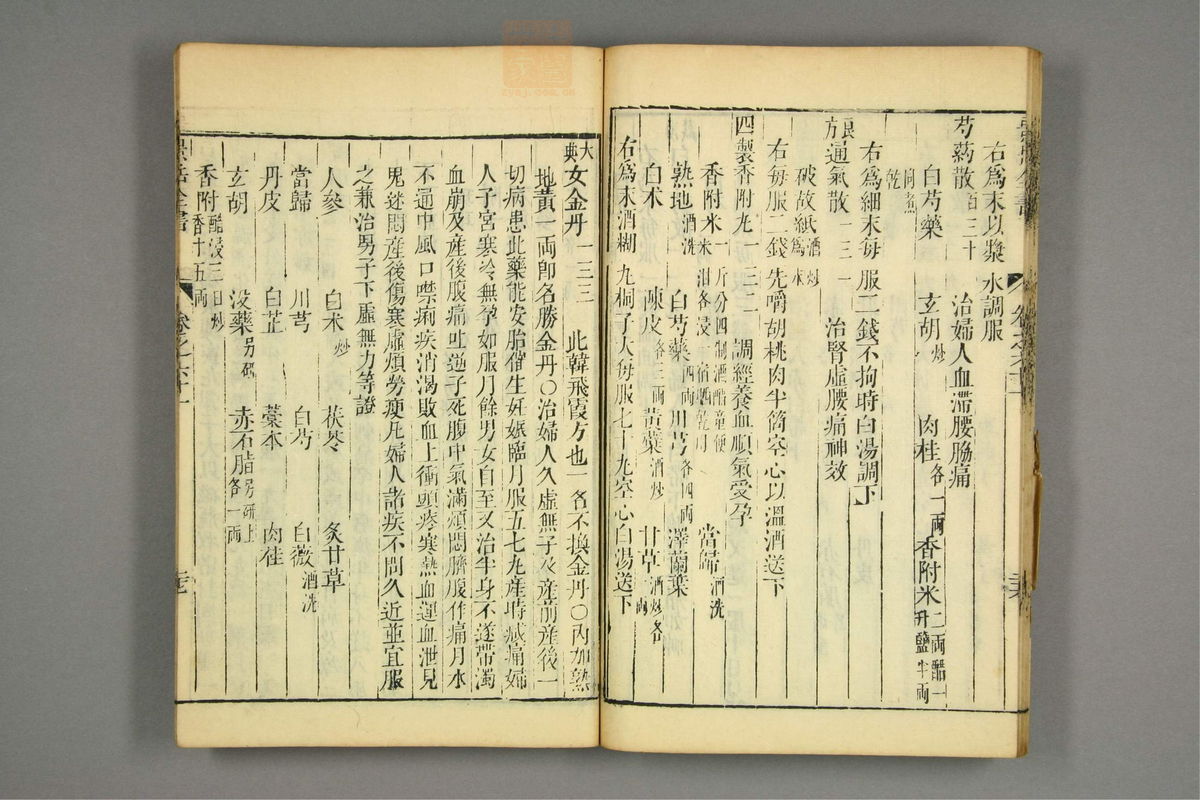 右為末以漿水調服
芍藥散百三十 治婦人血滯腰脇痛
白芍藥 玄胡炒 肉桂各一兩 香附米二兩醋一升鹽半兩
同煮乾
右為細末每服二錢不拘時白湯調下
良方通氣散一三一 治腎虛腰痛神效
破故紙酒炒為末
右每服二錢先嚼胡桃肉半箇空心以溫酒送下
四製香附丸一三二 調經養血順氣受孕
香附米一斤分四制酒醋童便米泔各浸一宿晒乾用 當歸酒洗
熟地酒洗 白芍藥四兩 川芎各四兩 澤蘭葉
白术 陳皮各三兩 黃蘗酒炒 甘草酒炒各一兩
右為末酒糊丸桐子大每服七十丸空心白湯送下
大典女金丹一三三 此韓飛霞方也一名不換金丹〇內加熟
地黃一兩即名勝金丹〇治婦人久虛無子及產前產後一
切病患此藥能安胎催生妊娠臨月服五七丸產時減痛婦
人子宮寒冷無孕如服月餘男女自至又治半身不遂帶濁
血崩及產後腹痛吐逆子死腹中氣滿煩悶臍腹作痛月水
不通中風口噤痢疾消渴敗血上衝頭疼寒熱血運血泄見
鬼迷悶產後傷寒虛煩勞瘦凡婦人諸疾不問久近並宜服
之兼治男子下虛無力等證
人參 白术炒 茯苓 炙甘草
當歸 川芎 白芍 白薇酒洗
丹皮 白芷 藁本 肉桂
玄胡 沒藥另研 赤石脂另研上各一兩
香附醋浸三日炒香十五兩